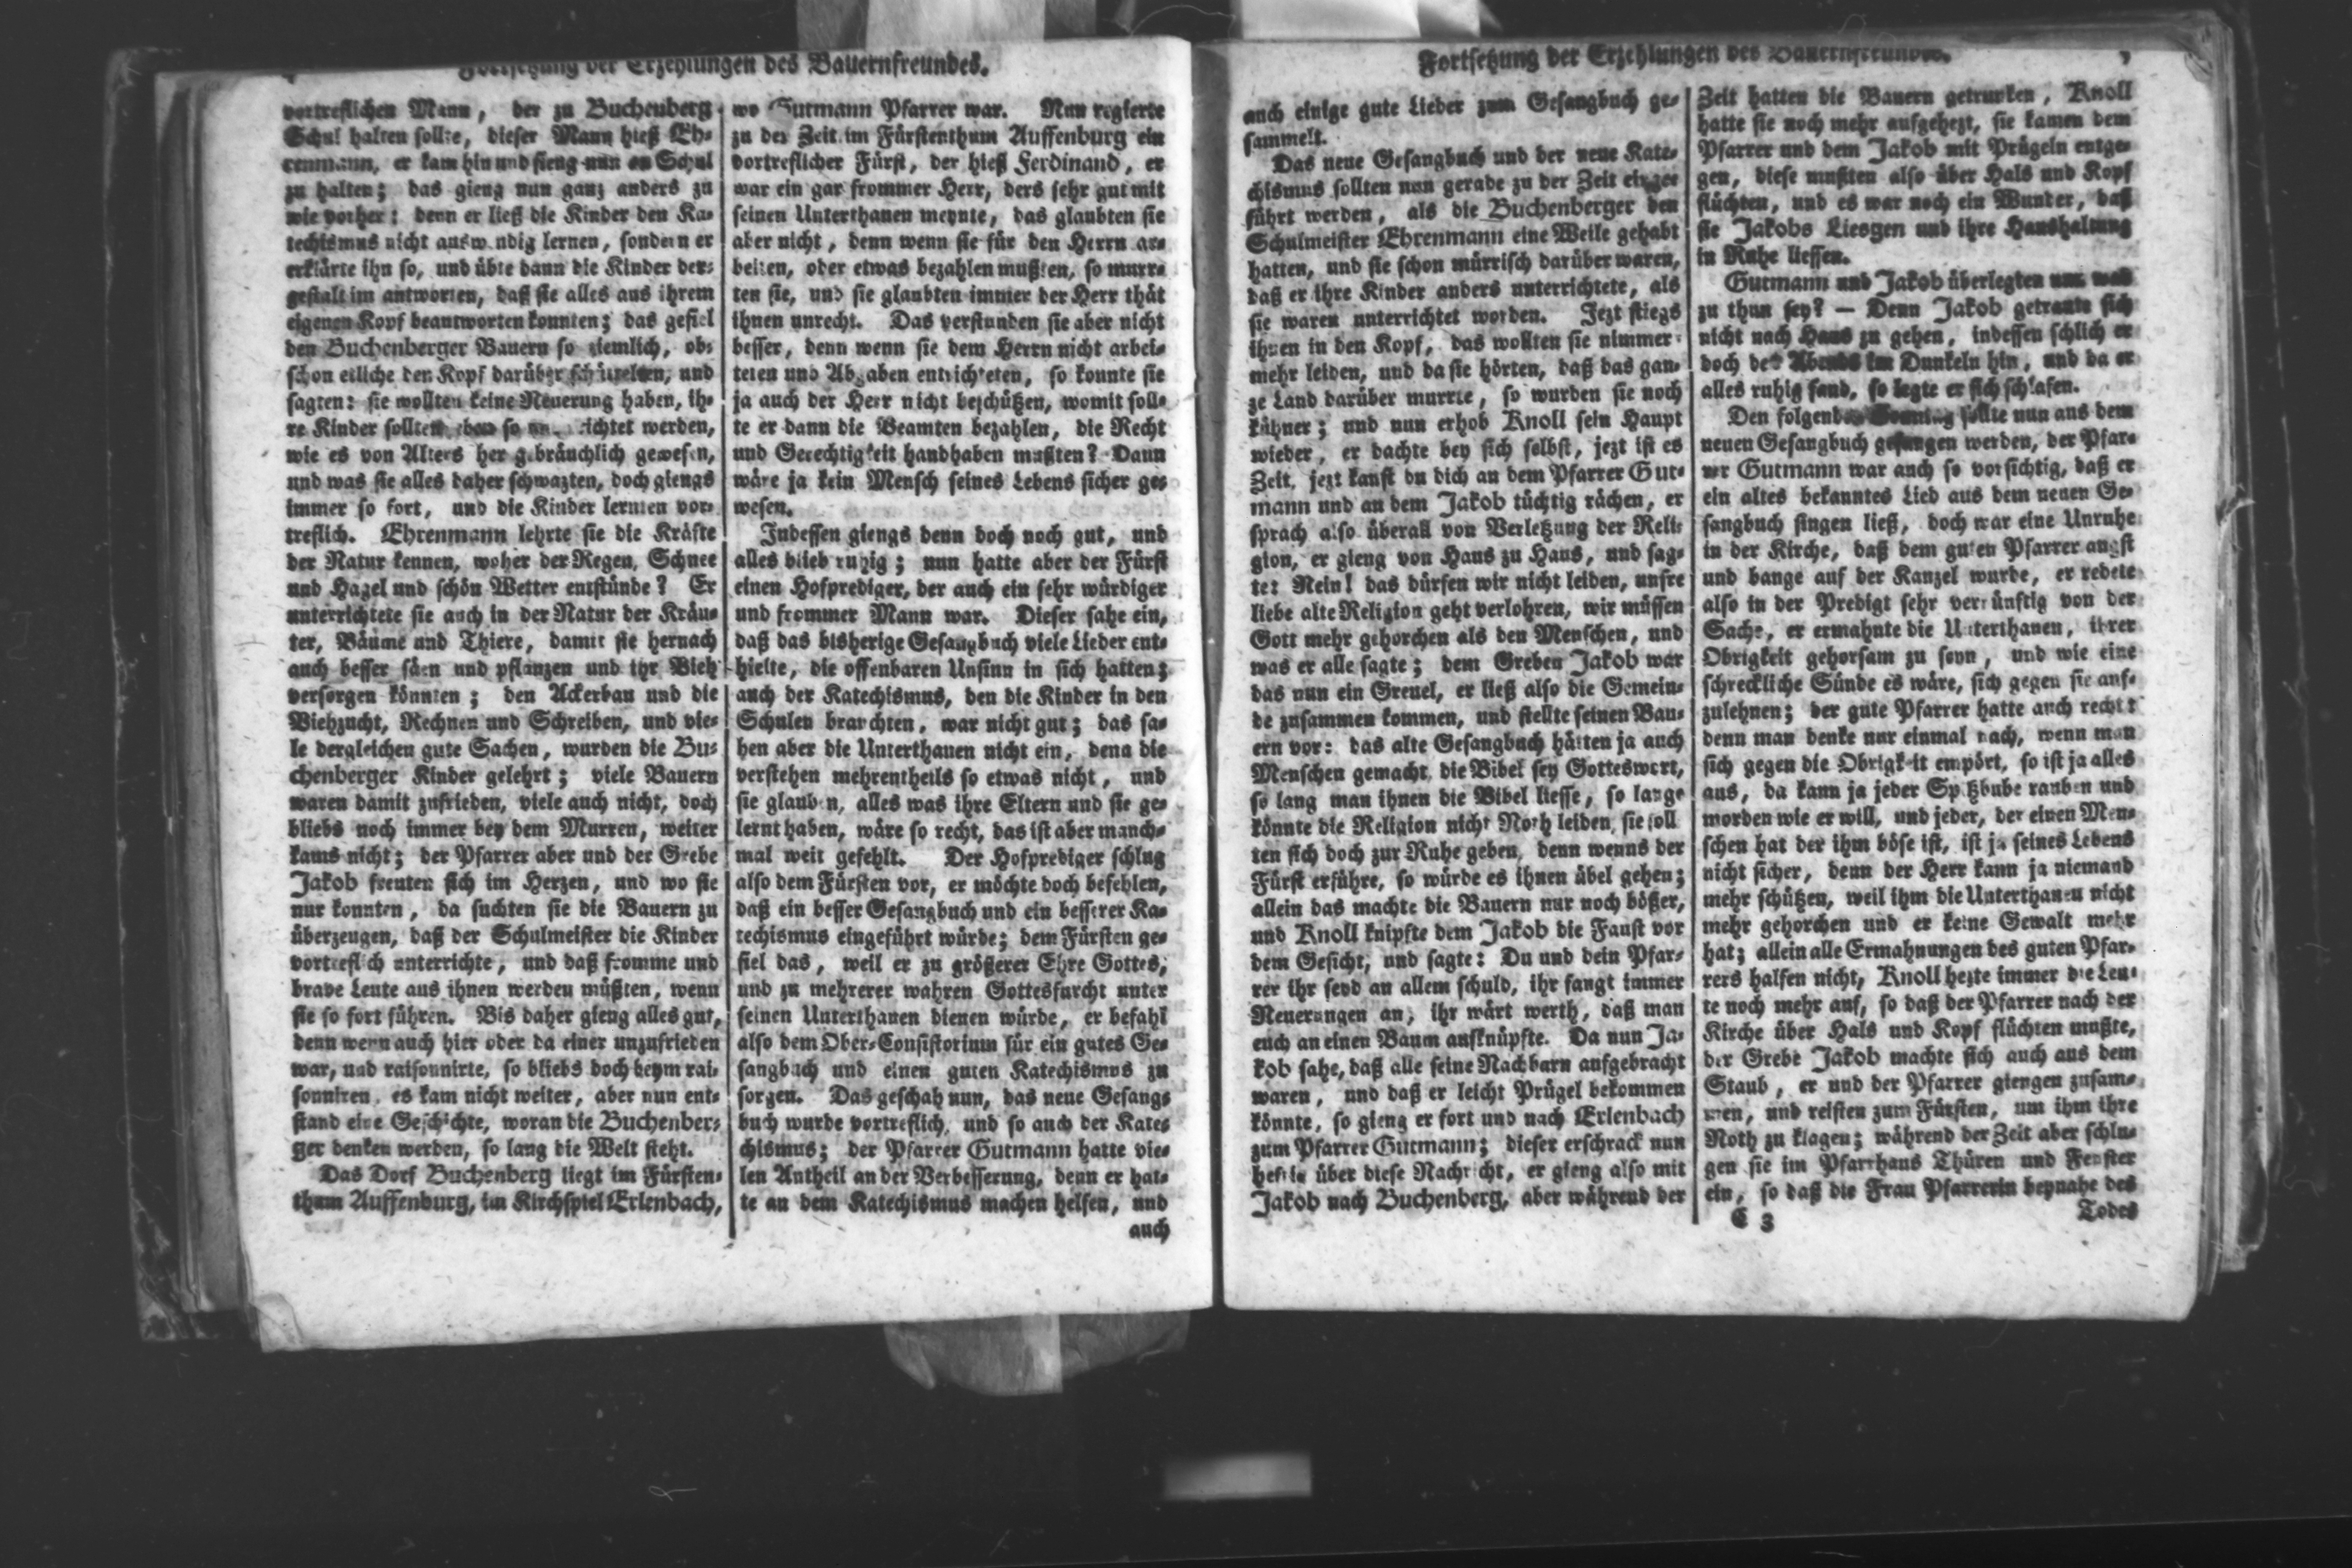 Fortsetzung der Erzehlungen des Bauernfreundes.
vortreflichen Mann, der zu Buchenberg
Schul halten sollte, dieser Mann hieß Eh-
renmann, er kam hin und fieng nun an Schul
zu halten; das gieng nun ganz anders zu
wie vorher: denn er ließ die Kinder den Ka-
techismus nicht auswendig lernen, sondern er
erklärte ihn so, und übte dann die Kinder der-
gestalt im antworten, daß sie alles aus ihrem
eigenen Kopf beantworten konnten; das gefiel
den Buchenberger Bauern so ziemlich, ob-
schon etliche den Kopf darüber schüttelten, und
sagten: sie wollten keine Neuerung haben, ih-
re Kinder sollten eben so unterrichtet werden,
wie es von Alters her gebräuchlich gewesen,
und was sie alles daher schwazten, doch giengs
immer so fort, und die Kinder lernten vor-
treflich. Ehrenmann lehrte sie die Kräfte
der Natur kennen, woher der Regen, Schnee
und Hagel und schön Wetter entstünde? Er
unterrichtete sie auch in der Natur der Kräu-
ter, Bäume und Thiere, damit sie hernach
auch besser säen und pflanzen und ihr Vieh
versorgen könnten; den Ackerbau und die
Viehzucht, Rechnen und Schreiben, und vie-
le dergleichen gute Sachen, wurden die Bu-
chenberger Kinder gelehrt; viele Bauern
waren damit zufrieden, viele auch nicht, doch
bliebs noch immer bey dem Murren, weiter
kams nicht; der Pfarrer aber und der Grebe
Jakob freuten sich im Herzen, und wo sie
nur konnten, da suchten sie die Bauern zu
überzeugen, daß der Schulmeister die Kinder
vortreflich unterrichte, und daß fromme und
brave Leute aus ihnen werden müßten, wenn
sie so fort führen. Bis daher gieng alles gut,
denn wenn auch hier oder da einer unzufrieden
war, und raisonnirte, so bliebs doch beym rai-
sonniren, es kam nicht weiter, aber nun ent-
stand eine Geschichte, woran die Buchenber-
ger denken werden, so lang die Welt steht.
Das Dorf Buchenberg liegt im Fürsten-
thum Auffenburg, im Kirchspiel Erlenbach,
wo Gutmann Pfarrer war. Nun regierte
zu der Zeit im Fürstenthum Auffenburg ein
vortreflicher Fürst, der hieß Ferdinand, er
war ein gar frommer Herr, ders sehr gut mit
seinen Unterthanen meynte, das glaubten sie
aber nicht, denn wenn sie für den Herrn ar-
beiten, oder etwas bezahlen mußten, so murr-
ten sie, und sie glaubten immer der Herr thät
ihnen unrecht. Das verstunden sie aber nicht
besser, denn wenn sie dem Herrn nicht arbei-
teten und Abgaben entrichteten, so konnte sie
ja auch der Herr nicht beschützen, womit soll-
te er dann die Beamten bezahlen, die Recht
und Gerechtigkeit handhaben mußten? Dann
wäre ja kein Mensch seines Lebens sicher ge-
wesen.
Indessen giengs denn doch noch gut, und
alles blieb ruhig; nun hatte aber der Fürst
einen Hofprediger, der auch ein sehr würdiger
und frommer Mann war. Dieser sahe ein,
daß das bisherige Gesangbuch viele Lieder ent-
hielte, die offenbaren Unsinn in sich hatten;
auch der Katechismus, den die Kinder in den
Schulen brauchten, war nicht gut; das sa-
hen aber die Unterthanen nicht ein, denn die
verstehen mehrentheils so etwas nicht, und
sie glauben, alles was ihre Eltern und sie ge-
lernt haben, wäre so recht, das ist aber manch-
mal weit gefehlt. Der Hofprediger schlug
also dem Fürsten vor, er möchte doch befehlen,
daß ein besser Gesangbuch und ein besserer Ka-
techismus eingeführt würde; dem Fürsten ge-
fiel das, weil er zu größerer Ehre Gottes,
und zu mehrerer wahren Gottesfurcht unter
seinen Unterthanen dienen würde, er befahl
also dem Ober-Consistorium für ein gutes Ge-
sangbuch und einen guten Katechismus zu
sorgen. Das geschah nun, das neue Gesang-
buch wurde vortreflich, und so auch der Kate-
chismus; der Pfarrer Gutmann hatte vie-
len Antheil an der Verbesserung, denn er hat-
te an dem Katechismus machen helfen, und
auch
Fortsetzung der Erzehlungen des Bauernfreundes.
auch einige gute Lieder zum Gesangbuch ge-
sammelt.
Das neue Gesangbuch und der neue Kate-
chismus sollten nun gerade zu der Zeit einge-
führt werden, als die Buchenberger den
Schulmeister Ehrenmann eine Weile gehabt
hatten, und sie schon mürrisch darüber waren,
daß er ihre Kinder anders unterrichtete, als
sie waren unterrichtet worden. Jezt stiegs
ihnen in den Kopf, das wollten sie nimmer-
mehr leiden, und da sie hörten, daß das gan-
ze Land darüber murrte, so wurden sie noch
kühner; und nun erhob Knoll sein Haupt
wieder, er dachte bey sich selbst, jezt ist es
Zeit, jezt kanst du dich an dem Pfarrer Gut-
mann und an dem Jakob tüchtig rächen, er
sprach also überall von Verletzung der Reli-
gion, er gieng von Haus zu Haus, und sag-
te: Nein! das dürfen wir nicht leiden, unsre
liebe alte Religion geht verlohren, wir müssen
Gott mehr gehorchen als den Menschen, und
was er alle sagte; dem Greben Jakob war
das nun ein Greuel, er ließ also die Gemein-
de zusammen kommen, und stellte seinen Bau-
ern vor: das alte Gesangbuch hätten ja auch
Menschen gemacht, die Bibel sey Gotteswort,
so lang man ihnen die Bibel liesse, so lange
könnte die Religion nicht Noth leiden, sie soll
ten sich doch zur Ruhe geben, denn wenns der
Fürst erführe, so würde es ihnen übel gehen;
allein das machte die Bauern nur noch bößer,
und Knoll knipfte dem Jakob die Faust vor
dem Gesicht, und sagte: Du und dein Pfar-
rer ihr seyd an allem schuld, ihr fangt immer
Neuerungen an, ihr wärt werth, daß man
euch an einen Baum aufknüpfte. Da nun Ja-
kob sahe, daß alle seine Nachbarn aufgebracht
waren, und daß er leicht Prügel bekommen
könnte, so gieng er fort und nach Erlenbach
zum Pfarrer Gutmann; dieser erschrack nun
heftig über diese Nachricht, er gieng also mit
Jakob nach Buchenberg, aber während der
Zeit hatten die Bauern getrunken, Knoll
hatte sie noch mehr aufgehezt, sie kamen dem
Pfarrer und dem Jakob mit Prügeln entge-
gen, diese mußten also über Hals und Kopf
flüchten, und es war noch ein Wunder, daß
sie Jakobs Liesgen und ihre Haushaltung
in Ruhe liessen.
Gutmann und Jakob überlegten nun was
zu thun sey? — Denn Jakob getraute sich
nicht nach Haus zu gehen, indessen schlich er
doch des Abends im Dunkeln hin, und da er
alles ruhig fand, so legte er sich schlafen.
Den folgenden Sonntag sollte nun aus dem
neuen Gesangbuch gesungen werden, der Pfar-
rer Gutmann war auch so vorsichtig, daß er
ein altes bekanntes Lied aus dem neuen Ge-
sangbuch singen ließ, doch war eine Unruhe
in der Kirche, daß dem guten Pfarrer angst
und bange auf der Kanzel wurde, er redete
also in der Predigt sehr vernünftig von der
Sache, er ermahnte die Unterthanen, ihrer
Obrigkeit gehorsam zu seyn, und wie eine
schreckliche Sünde es wäre, sich gegen sie auf-
zulehnen; der gute Pfarrer hatte auch recht:
denn man denke nur einmal nach, wenn man
sich gegen die Obrigkeit empört, so ist ja alles
aus, da kann ja jeder Spitzbube rauben und
morden wie er will, und jeder, der einen Men-
schen hat der ihm böse ist, ist ja seines Lebens
nicht sicher, denn der Herr kann ja niemand
mehr schützen, weil ihm die Unterthanen nicht
mehr gehorchen und er keine Gewalt mehr
hat; allein alle Ermahnungen des guten Pfar-
rers halfen nicht, Knoll hezte immer die Leu-
te noch mehr auf, so daß der Pfarrer nach der
Kirche über Hals und Kopf flüchten mußte,
der Grebe Jakob machte sich auch aus dem
Staub, er und der Pfarrer giengen zusam-
men, und reisten zum Fürsten, um ihm ihre
Noth zu klagen; während der Zeit aber schlu-
gen sie im Pfarrhaus Thüren und Fenster
ein, so daß die Frau Pfarrerin beynahe des
C 3
Todes